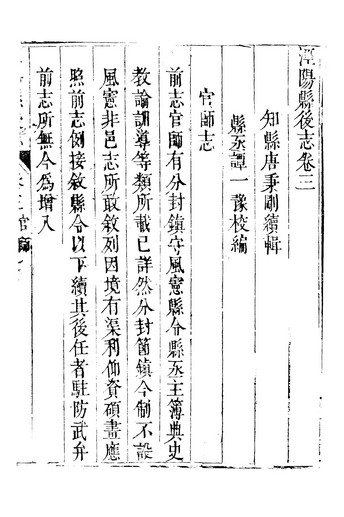 涇陽縣後志卷三
知縣唐秉剛續輯
縣丞譚一豫校編
官師志
前志官師有分封鎮守風憲縣令縣丞主簿典史
教諭訓導等類所載已詳然分封簡鎮今制不設
風憲非邑志所敢敘列因境有渠利仰資碩畫應
照前志例接敘縣令以下續其後任者駐防武弁
前志所無今為增入